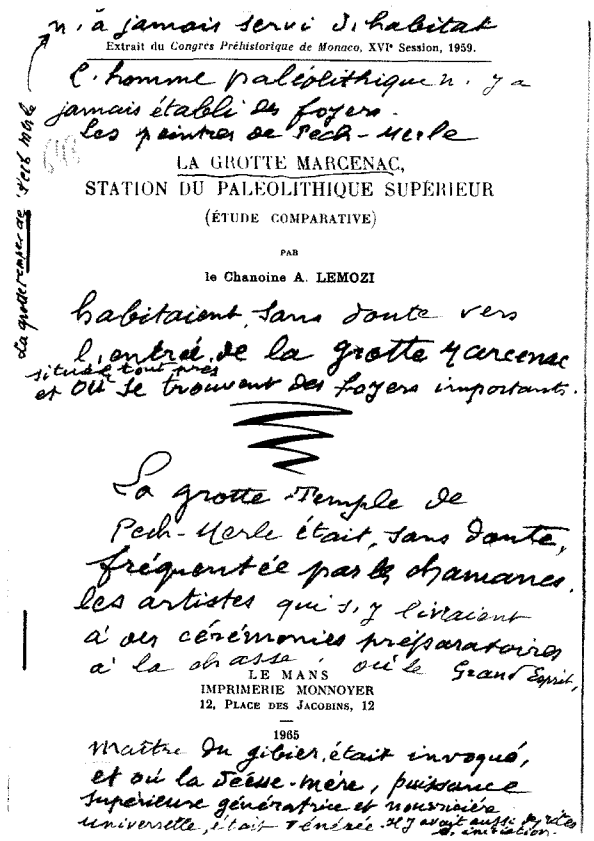 La grotte temple de Pech Merle
n'a jamais servi d'habitat
Extrait du Congrès Préhistorique de Monaco, XVIe Session, 1959.
l'homme paléolithique n'y a
jamais établi des foyers.
Les peintres de Pech-Merle
LA GROTTE MARCENAC,
STATION DU PALÉOLITHIQUE SUPÉRIEUR
(ÉTUDE COMPARATIVE)
PAR
le Chanoine A. LEMOZI
habitaient, sans doute vers
l'entrée, de la grotte Marcenac
située tout près
et où se trouvent des foyers importants.
La grotte-Temple de
Pech-Merle était, sans doute,
fréquentée par les chamanes.
les artistes qui s'y livraient
à des cérémonies préparatoires
à la chasse, où le Grand Esprit,
LE MANS
IMPRIMERIE MONNOYER
12, PLACE DES JACOBINS, 12
1965
Maître du gibier, était invoqué,
et où la Déesse-mère, puissance
supérieure génératrice et nourricière
universelle, était vénérée. Il y avait aussi rites
d'initiation.